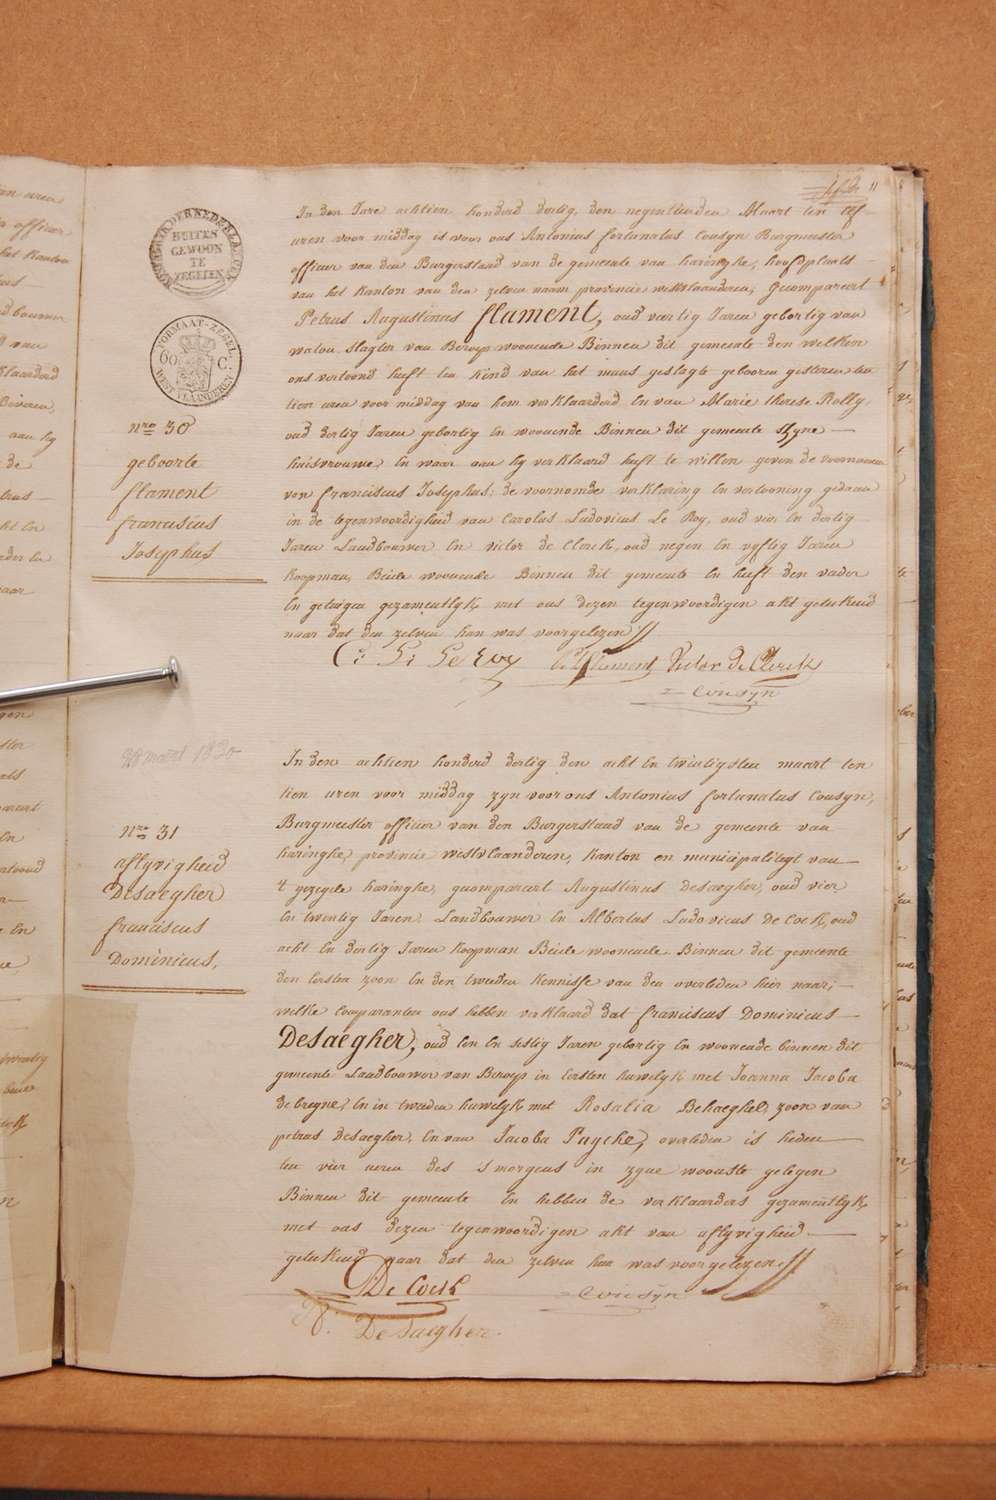 11
KONINGRYK DER NEDERLANDEN
BUITEN
GEWOON
TE
ZEGELEN
FORMAAT-ZEGEL
60 C.
WEST-VLAANDEREN
nro 30
geboorte
flament
franciscus
Josephus
In den Jare achtien honderd dertig, den negentienden Maart ten elf
uren voor middag is voor ons Antonius fortunatus Cousyn Burgmeester
officier van den Burgerstand van de gemeente van haringhe, hoofdplaets
van het kanton van den zelven naam provincie westvlaanderen, gecompareert
Petrus Augustinus flament, oud veertig Jaren gebortig van
watou slagter van Beroep woonende Binnen dit gemeente den welken
ons vertoond heeft een kind van het mans geslagte geboren gisteren ten
tien uren voor middag van hem verklaarderd En van Marie therese Rolly,
oud dertig Jaren gebortig En woonende Binnen dit gemeente Zyne
huisvrouwe En waar aan hy verklaard heeft te willen geven de voornaemen
van franciscus Josephus; de voornomde verklaring En vertooning gedaan
in de tegenwoordigheid van Carolus Ludovicus Le Roy, oud vier En dertig
Jaren Landbouwer En victor de Clerck, oud negen En vyftig Jaren
koopman, Beide woonende Binnen dit gemeente En heeft den vader
En getuigen gezamentlyk met ons dezen tegenwoordigen akt geteekend
naar dat den zelven hun was voorgelezen
C: L: Le Roy P. Flament Victor De Clerck
Cousyn
28 maart 1830
nro 31
aflyvigheid
Desaegher
franciscus
Dominicus,
In den achtien honderd dertig den acht En twintigsten maart ten
tien uren voor middag zyn voor ons Antonius fortunatus Cousyn,
Burgmeester officier van den Burgerstand van de gemeente van
haringhe, provincie westvlaanderen, kanton en municipaliteyt van
't gezegde haringhe, gecompareert Augustinus Desaegher, oud vier
En twintig Jaren Landbouwer En Albertus Ludovicus De Cock, oud
acht En dertig Jaren koopman Beide woonende Binnen dit gemeente
den Eersten zoon En den tweeden kennisse van den overleden hier naar;
welke Comparanten ons hebben verklaard dat franciscus Dominicus
Desaegher, oud Een En sestig Jaren gebortig En woonende binnen dit
gemeente Landbouwer van Beroep in Eersten huwelyk met Joanna Jacoba
debreyne, En in tweeden huwelyk met Rosalia Behaeghel, zoon van
petrus Desaegher, En van Jacoba Puyche, overleden is heden
ten vier uren des s'morgens in zyne woonste gelegen
Binnen dit gemeente En hebben de verklaarders gezamentlyk
met ons dezen tegenwoordigen akt van aflyvigheid
geteekend naar dat den zelven hun was voorgelezen
De Cock
Cousyn
Desaegher